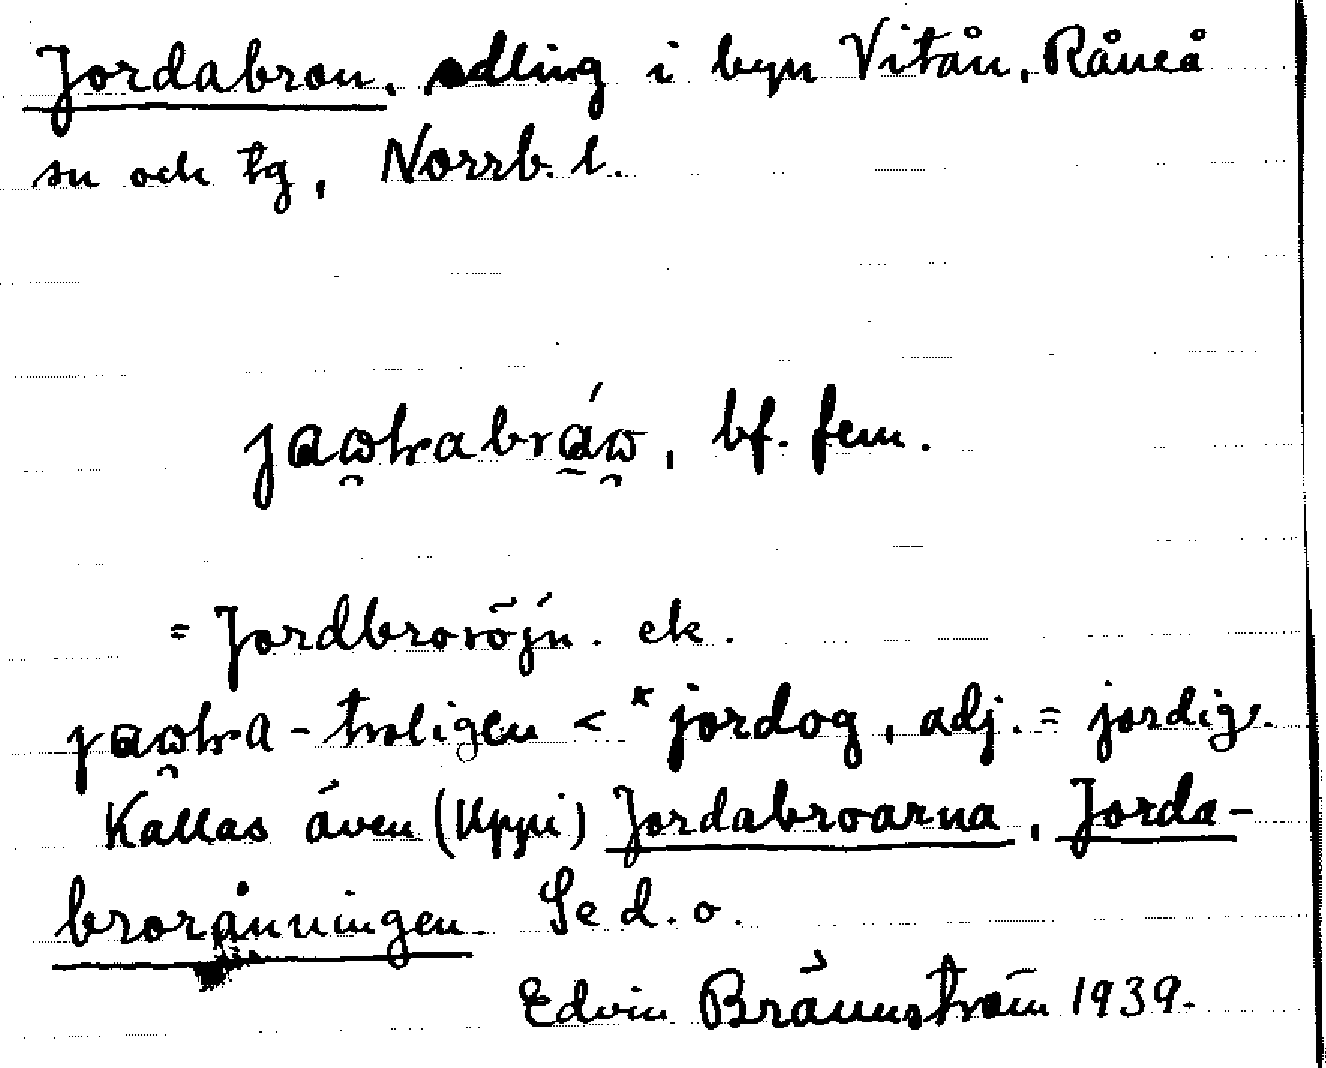 Jordabron, odling i byn Vitån, Råneå
sn och tg, Norrb. l.
jaωrabráω, bf. fem.
= Jordbroröjn. ek.
jaωra- troligen < *jordog, adj. = jordig.
Kallas även (Uppi) Jordabroarna, Jorda-
broränningen. Se d. o.
Edvin Brännström 1939.